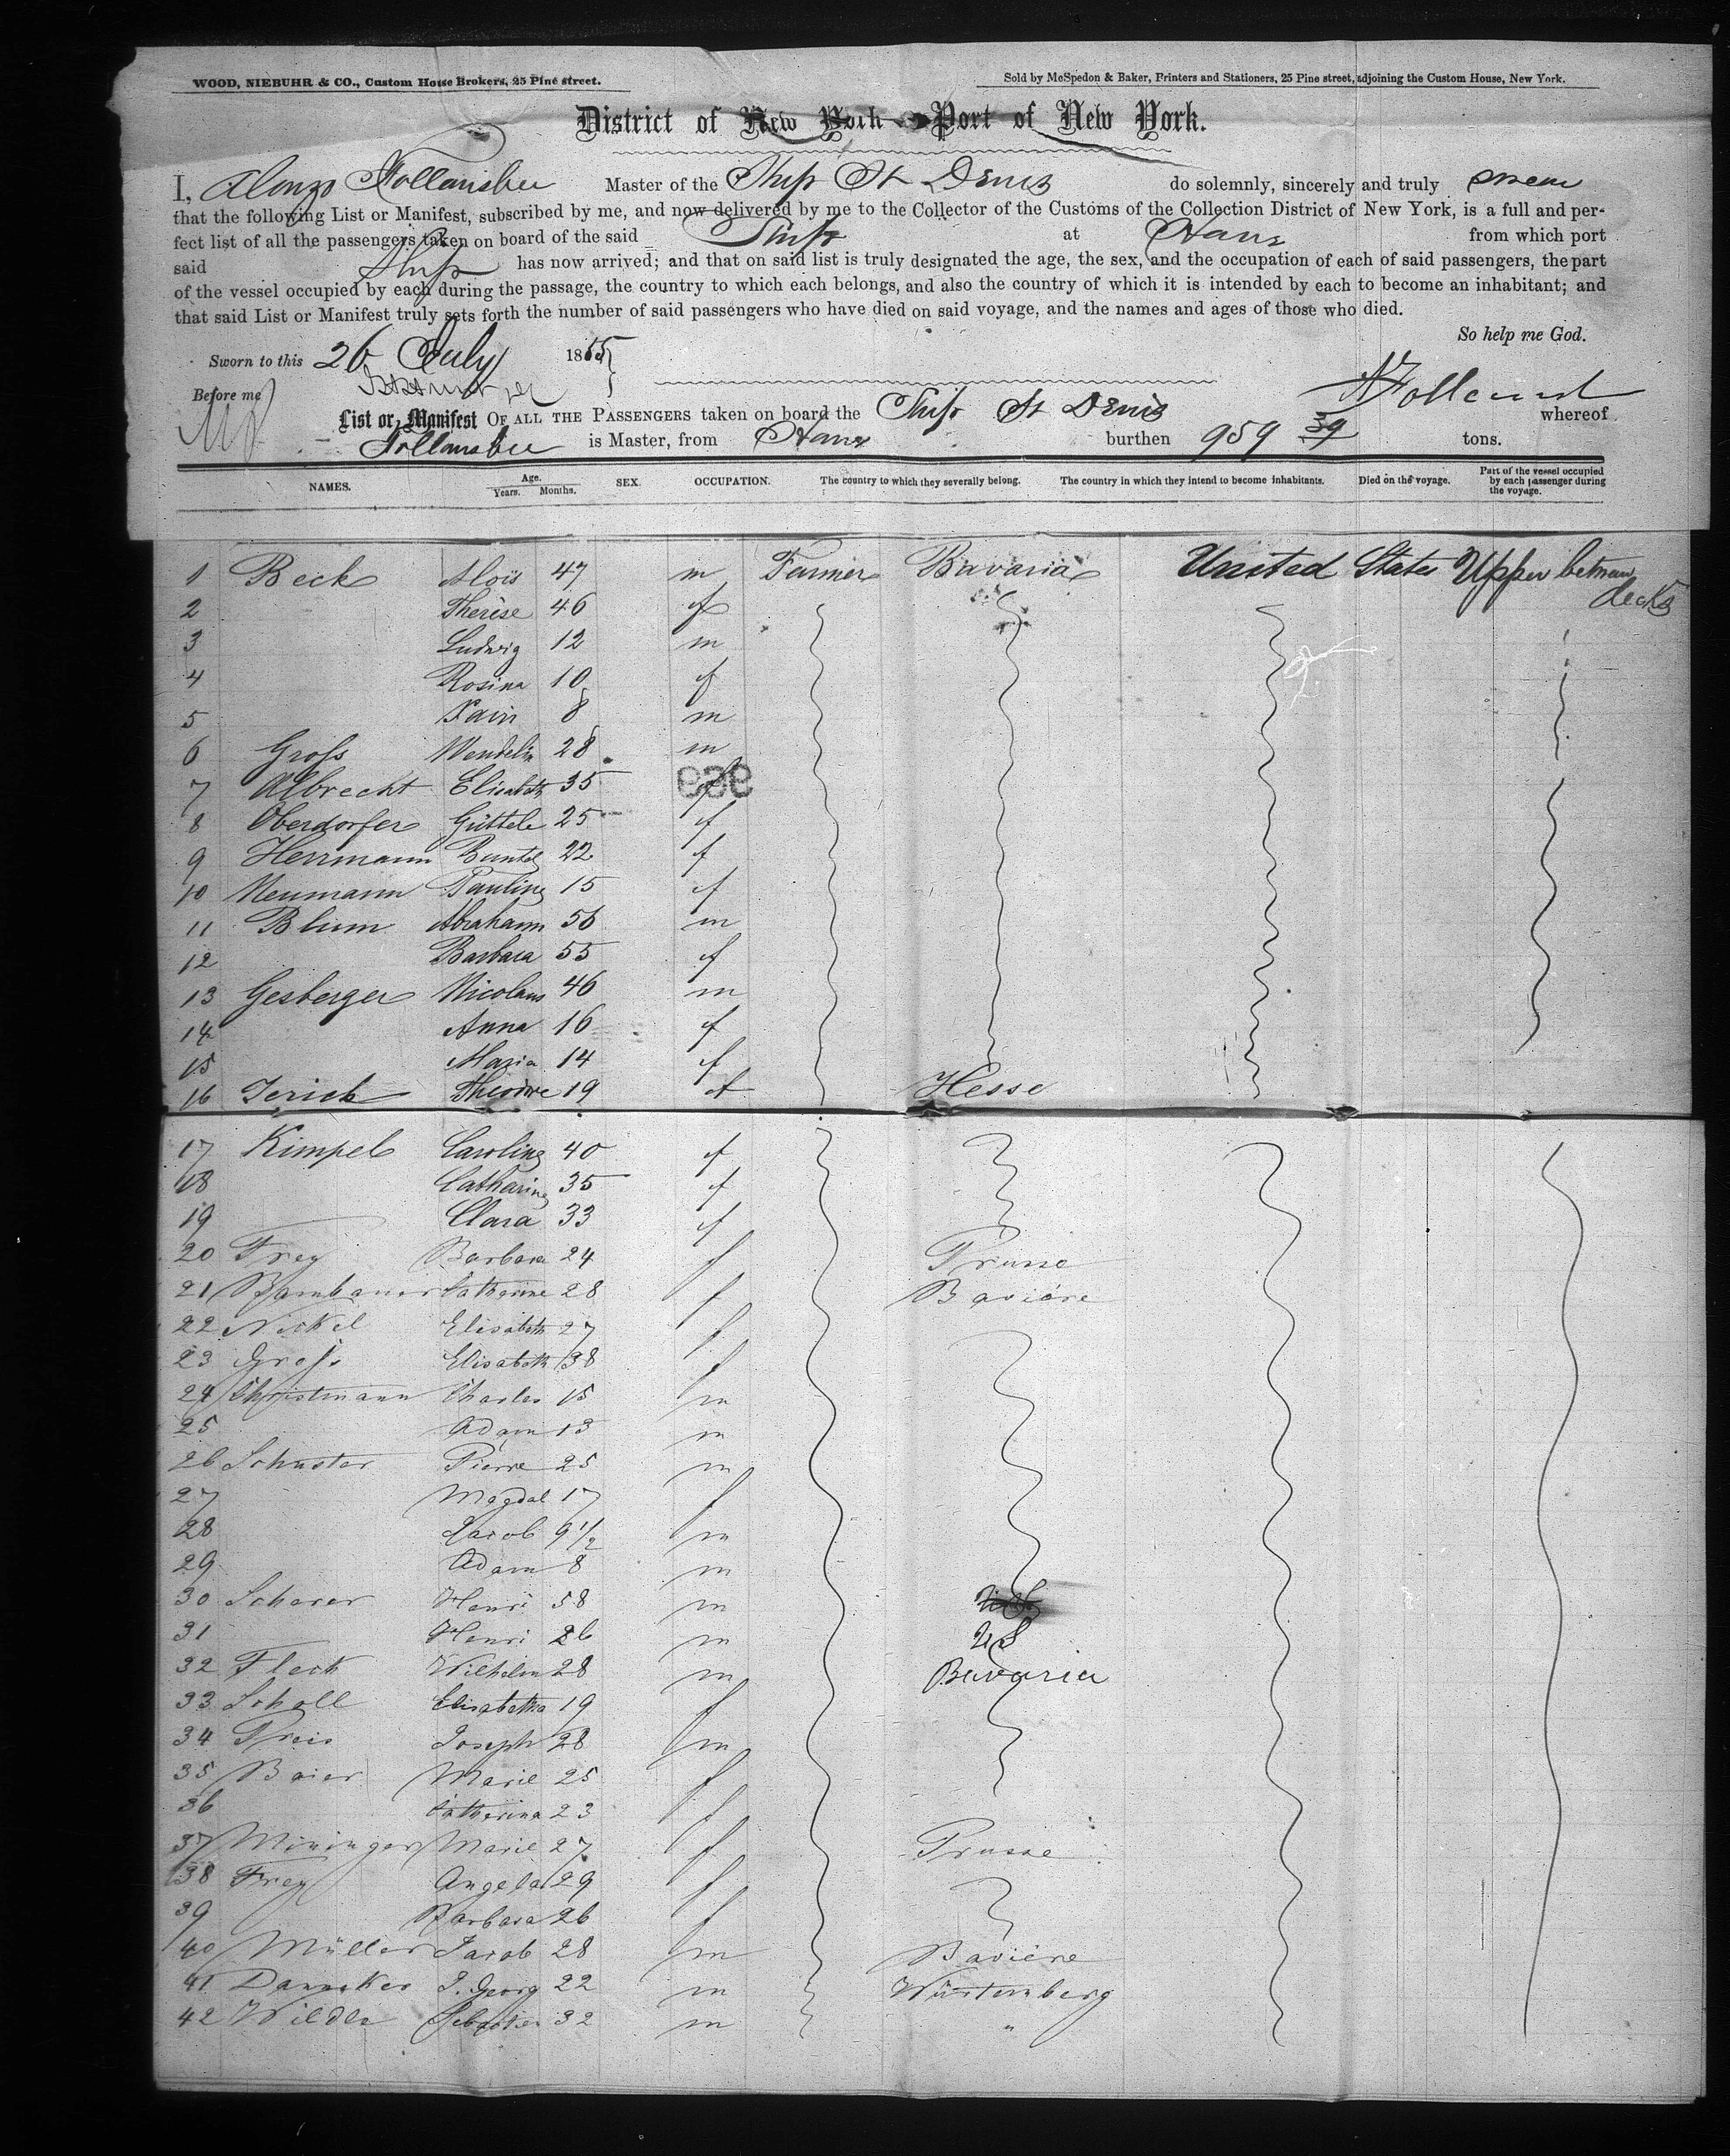 WOOD, NIEBUHR & CO., Custom House Brokers, 25 Pine street.
Sold by McSpedon & Baker, Printers and Stationers, 25 Pine street, adjoining the Custom House, New York.
District of New York - Port of New York.
I, Alonzo Follansbee Master of the Ship St Denis do solemnly, sincerely and truly swear
that the following List or Manifest, subscribed by me, and now delivered by me to the Collector of the Customs of the Collection District of New York, is a full and per-
fect list of all the passengers taken on board of the said Ship at Havre from which port
said Ship has now arrived; and that on said list is truly designated the age, the sex, and the occupation of each of said passengers, the part
of the vessel occupied by each during the passage, the country to which each belongs, and also the country of which it is intended by each to become an inhabitant; and
that said List or Manifest truly sets forth the number of said passengers who have died on said voyage, and the names and ages of those who died.
So help me God.
Sworn to this 26 July 1855
Before me
List or Manifest OF ALL THE PASSENGERS taken on board the Ship St Denis whereof
Follansbee is Master, from Havre burthen 959 39 tons.
NAMES. Age. Years. Months. SEX. OCCUPATION. The country to which they severally belong. The country in which they intend to become inhabitants. Died on the voyage. Part of the vessel occupied by each passenger during the voyage.
1 Beck Aloïs 47 m Farmer Bavaria United States Upper between decks
2 Therèse 46 f
3 Ludwig 12 m
4 Rosina 10 f
5 8 m
6 Groß Wendelin 28 m
7 Albrecht Elisabeth 35 f
8 Oberdorfer Güttele 25 f
9 Herrmann 22 f
10 Neumann Pauline 15 f
11 Blum Abraham 56 m
12 Barbara 55 f
13 Gesberger Nicolaus 46 m
14 Anna 16 f
15 Maria 14 f
16 Jerich Theodore 19 f Hesse
17 Kimpel Caroline 40 f
18 Catharine 35 f
19 Clara 33 f
20 Frey Barbara 24 f Prusse
21 Bambauer Catherine 28 f Bavière
22 Nickel Elisabeth 27 f
23 Groß Elisabeth 38 f
24 Christmann Charles 15 m
25 Adam 13 m
26 Schuster Pierre 25 m
27 Magdal 17 f
28 Jacob 9 1/2 m
29 Adam 8 m
30 Scherer Henri 58 m
31 Henri 26 m US
32 Fleck Wilhelm 28 m Bavaria
33 Scholl Elisabetha 19 f
34 Preis Joseph 28 m
35 Baier Marie 25 f
36 Catherina 23 f
37 Mininger Marie 27 f Prusse
38 Frey Angela 29 f
39 Barbara 26 f
40 Müller Jacob 28 m Bavière
41 Dannecker J. Georg 22 m Würtemberg
42 Wilde Sebastien 32 m "